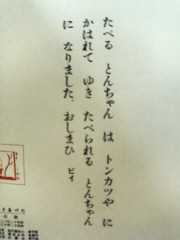 たべる とんちゃん は トンカツや に
かはれて ゆき たべられる とんちゃん
に なりました。おしまひ ピィ